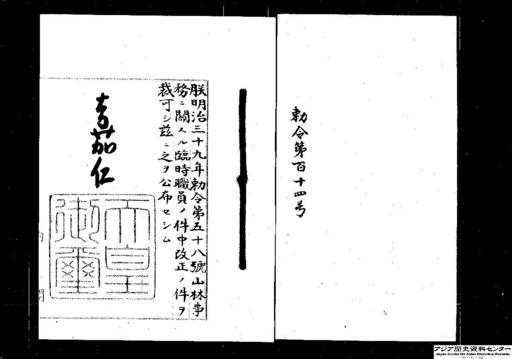 勅令第百十四号
朕明治三十九年勅令第五十八號山林事
務ニ關スル臨時職員ノ件中改正ノ件ヲ
裁可シ茲ニ之ヲ公布セシム
嘉仁
天皇
御璽
アジア歴史資料センター
Japan Center for Asian Historical Records